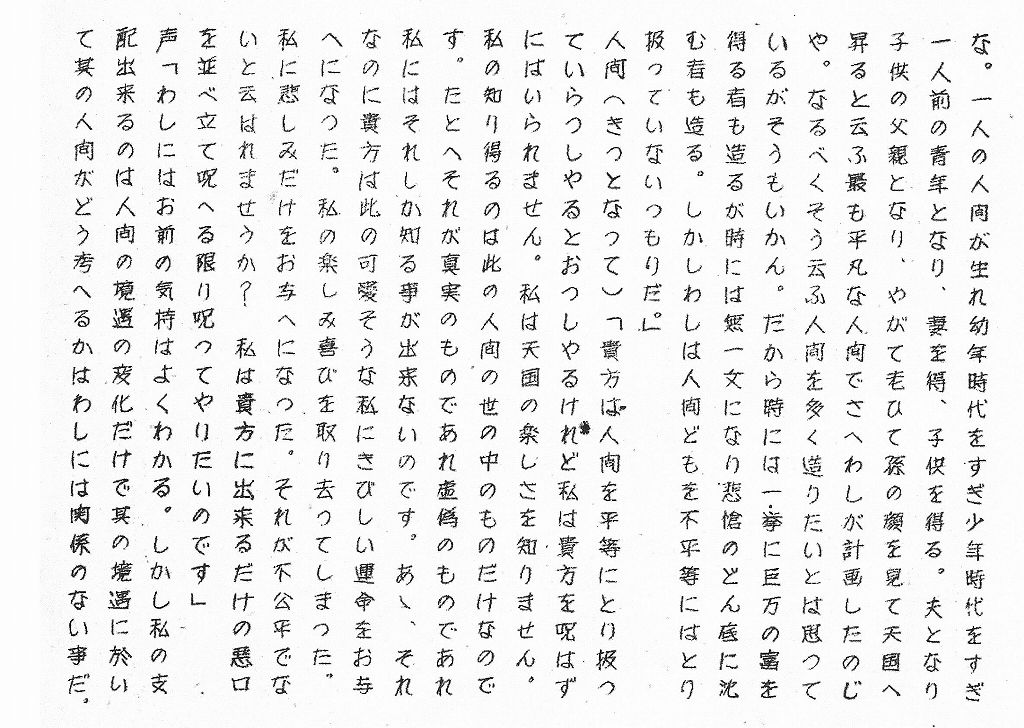 な。一人の人間が生れ幼年時代をすぎ少年時代をすぎ
一人前の青年となり、妻を得、子供を得る。夫となり
子供の父親となり、やがて老ひて孫の顔を見て天国へ
昇ると云ふ最も平凡な人間でさへわしが計画したのじ
や。なるべくそう云ふ人間を多く造りたいとは思つて
いるがそうもいかん。だから時には一挙に巨万の富を
得る者も造るが時には無一文になり悲愴のどん底に沈
む者も造る。しかしわしは人間どもを不平等にはとり
扱っていないつもりだ。」
人間へきつとなつて）「貴方は人間を平等にとり扱つ
ていらつしやるとおつしやるけれど私は貴方を呪はず
にはいられません。私は天国の楽しさを知りません。
私の知り得るのは此の人間の世の中のものだけなので
す。たとへそれが真実のものであれ虚偽のものであれ
私にはそれしか知る事が出来ないのです。あゝ、それ
なのに貴方は此の可愛そうな私にきびしい運命をお与
へになつた。私の楽しみ喜びを取り去つてしまつた。
私に悲しみだけをお与へになつた。それが不公平でな
いと云はれませうか？私は貴方に出来るだけの悪口
を並べ立て呪へる限り呪つてやりたいのです」
声「わしにはお前の気持はよくわかる。しかし私の支
配出来るのは人間の境遇の変化だけで其の境遇に於い
て其の人間がどう考へるかはわしには関係のない事だ。